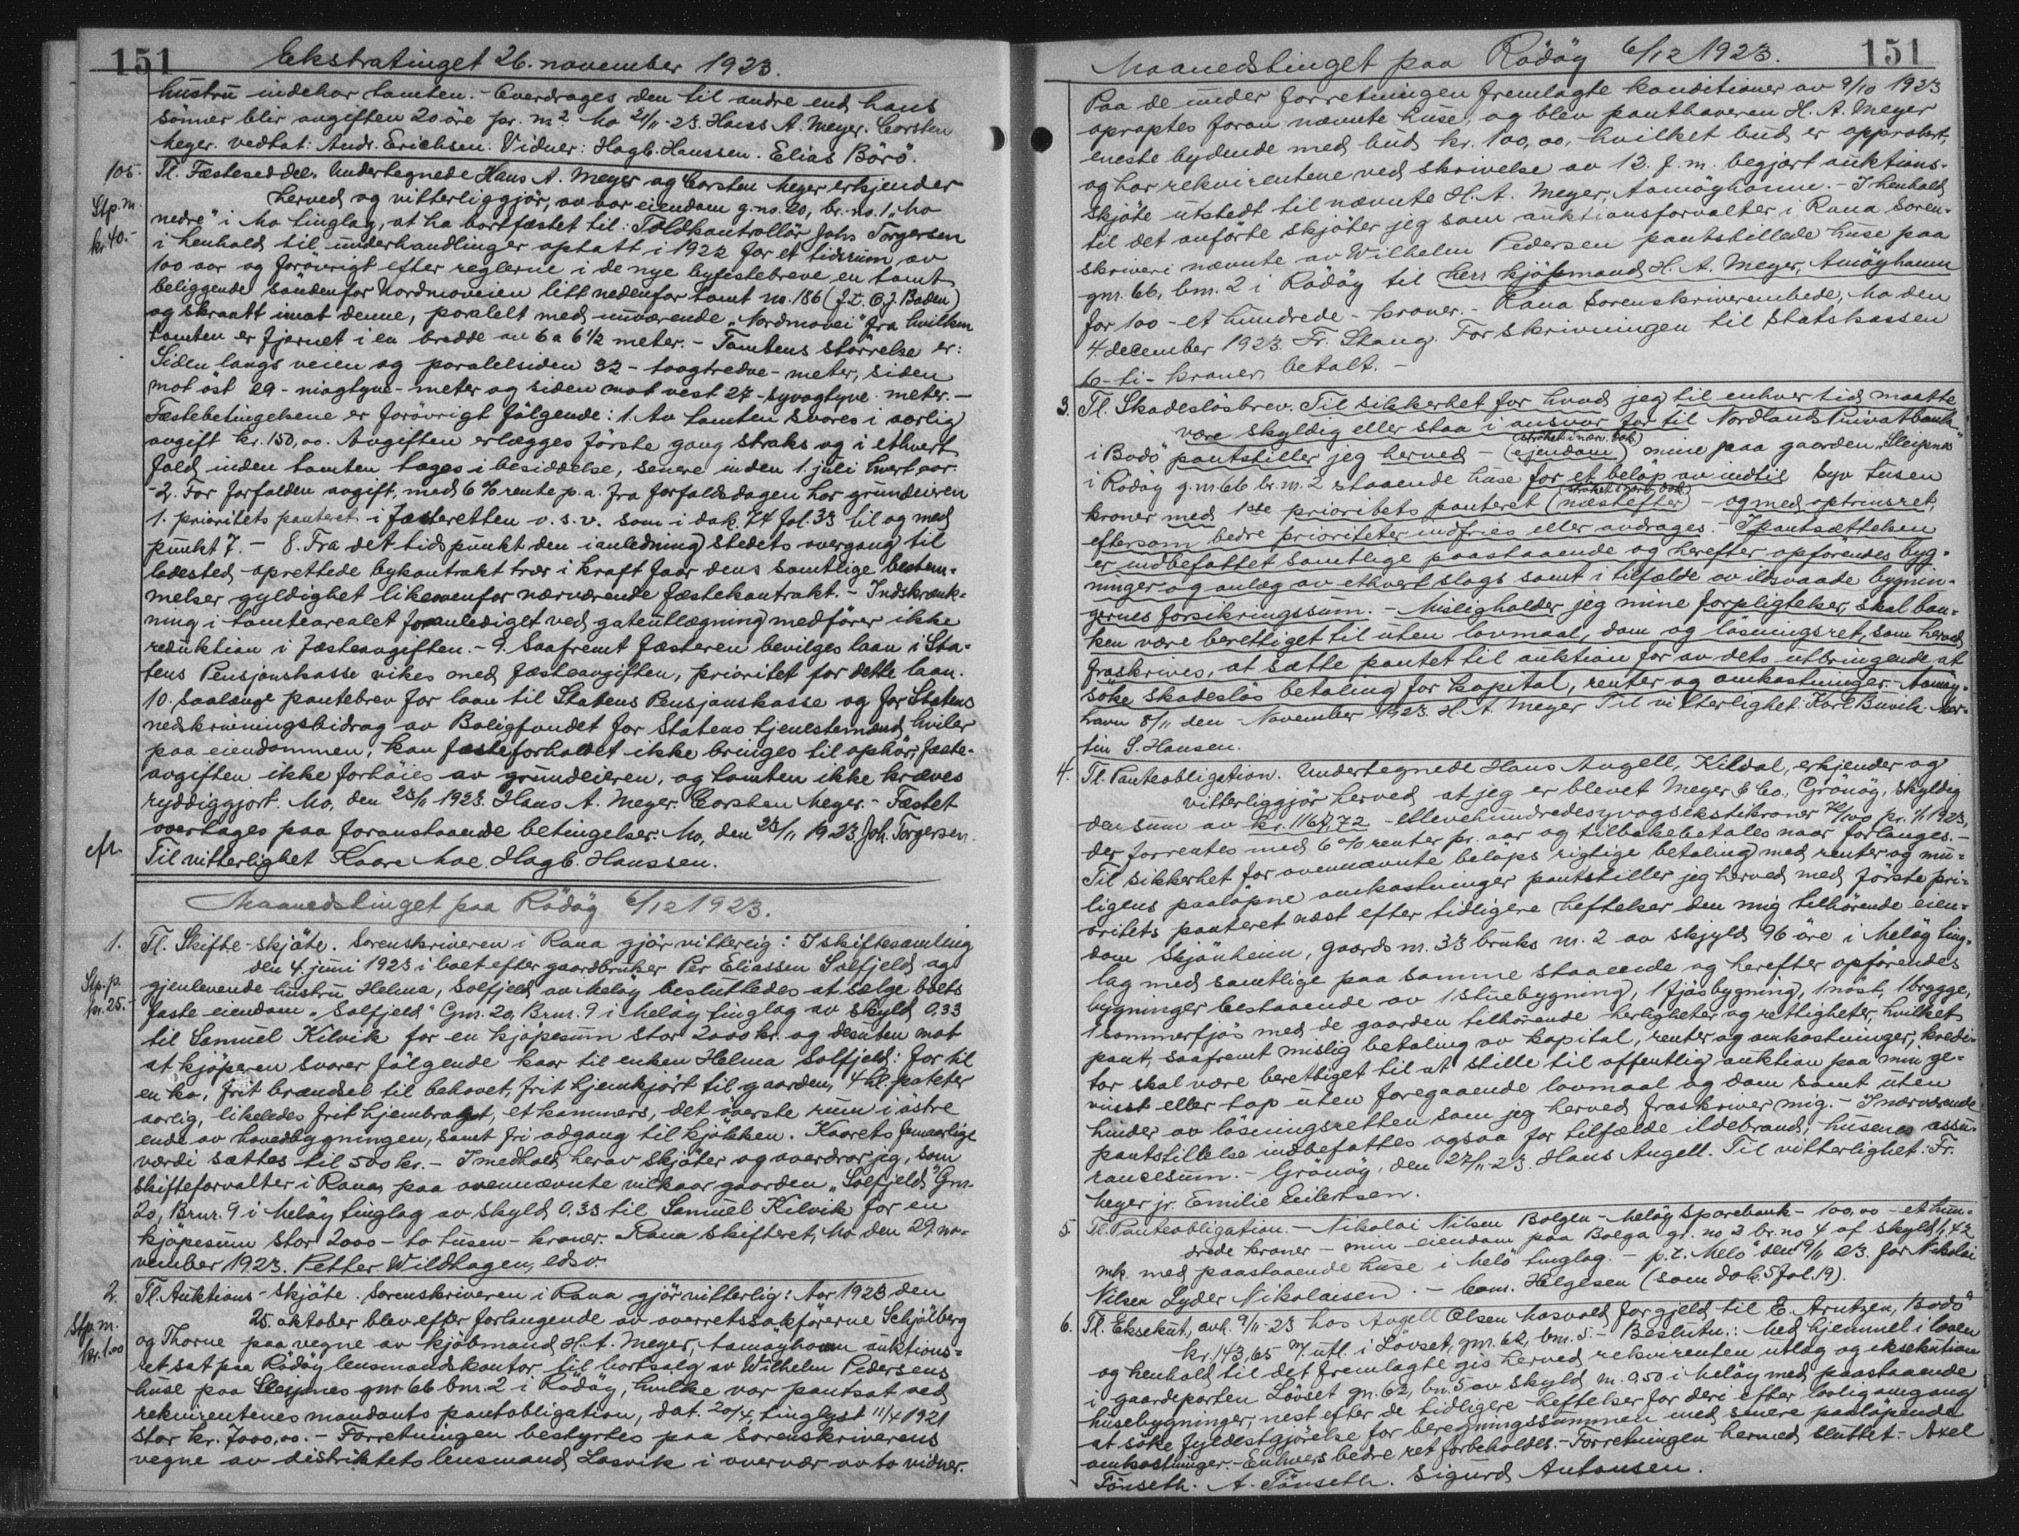 151
Ekstratinget 26. november 1923.
hustru indehar tomten. - Overdrages den til andre end hans
sönner blir avgiften 20 öre pr. m². Mo 21/11-23. Hans A. Meyer. Corsten
Meyer. Vedtat: Andr. Erichsen. Vidner: Hagb. Hanssen. Elias Börö.
105. Tl. Fæsteseddel. Undertegnede Hans A. Meyer og Corsten Meyer erkjender
Stp. m. herved og vitterliggjör, av vor eiendom g.no. 20, br. no. 1 „Mo
kr. 40.- nedre" i Mo tinglag, at ha bortfæstet til: Toldkontrollör Johs Torgersen
i henhold til underhandlinger optatt i 1922 for et tidsrum av
100 aar og forövrigt efter reglerne i de nye byfestebreve en tomt
beliggende söndenfor Nordmoveien litt nedenfor tomt no. 186 (f.t. O.J. Boden)
og skraatt imot denne, paralelt med nuværende „Nordmovei" fra hvilken
tomten er fjernet i en bredde av 6 a 6 1/2 meter. - Tomtens störrelse er:
Siden langs veien og paralelsiden 32 - toogtredve - meter, siden
mot öst 29 - niogtyve - meter og siden mot vest 27 - syvogtyve - meter. -
Fæstebetingelsene er forövrigt fölgende: 1. Av tomten svares i aarlig
avgift kr. 150,00. Avgiften erlægges förste gang straks og i ethvert
fald inden tomten tages i besiddelse, senere inden 1. juli hvert aar.
- 2. For forfalden avgift, med 6 % rente p. a. fra forfaldsdagen har grundeieren
1. prioritets panteret i fæsteretten o. s. v. som i dok. 74 fol. 33 til og med
punkt 7. - 8. Fra det tidspunkt den i anledning stedets overgang til
ladested oprettede bykontrakt trær i kraft faar dens samtlige bestem-
melser gyldighet likeovenfor nærværende fæstekontrakt. - Indskrænk-
ning i tomtearealet foranlediget ved gateutlægning medförer ikke
reduktion i fæsteavgiften. - 9. Saafremt fæsteren bevilges laan i Sta-
tens Pensjonskasse vikes med fæsteavgiften, prioritet for dette laan.
10. Saalænge pantebrev for laan til Statens Pensjonskasse og for Statens
nedskrivningsbidrag av Boligfondet for Statens tjenestemænd hviler
paa eiendommen, kan fæsteforholdet ikke bringes til ophör, fæste-
avgiften ikke forhöies av grundeieren, og tomten ikke kræves
ryddiggjort. Mo, den 23/11 1923. Hans A. Meyer. Corsten Meyer. - Fæstet
overtages paa foranstaaende betingelser. Mo, den 23/11 1923 Joh. Torgersen.
Til vitterlighet Kaare Moe. Hagb. Hanssen.
Maanedstinget paa Rödöy 6/12 1923.
1. Tl. Skifte-skjöte. Sorenskriveren i Rana gjör vitterlig: I skiftesamling
den 4. juni 1923 i boet efter gaardbruker Per Eliassen Solfjeld og
Stp. p. gjenlevende hustru Helma, Solfjeld av Melöy besluttedes at selge boets
kr. 25.- faste eiendom „Solfjeld" Gnr. 20, Brnr. 9 i Melöy tinglag av skyld 0.33
til Samuel Kilvik for en kjöpesum stor 2000 kr. og desuten mot
at kjöperen svarer fölgende kaar til enken Helma Solfjeld: for til
en ko, frit brændsel til behovet, frit hjemkjört til gaarden, 4 hl. poteter
aarlig, likeledes frit hjembragt, et kammers, det överste rum i östre
ende av hovedbygningen, samt fri adgang til kjökken. Kaarets femaarlige
værdi sættes til 500 kr. - I medhold herav skjöter og overdrar jeg, som
skifteforvalter i Rana, paa ovennævnte vilkaar gaarden „Solfjeld" Gnr.
20, Brnr. 9 i Melöy tinglag av skyld 0.33 til Samuel Kilvik for en
kjöpesum stor 2000 - to tusen - kroner. Rana skifteret, Mo den 29. no-
vember 1923. Petter Wildhagen, edsv.
2. Tl. Auktions-skjöte. Sorenskriveren i Rana gjör vitterlig: Aar 1923 den
25. oktober blev efter forlangende av overretssakförerne Schjölberg
Stp. m. og Thorne paa vegne av kjöbmand H. A. Meyer, Aamöyhavn auktions-
kr. 1.00 ret sat paa Rödöy lensmandskontor til bortsalg av Wilhelm Pedersens
huse paa Sleipnes gnr. 66 bnr. 2 i Rödöy, hvilke var pantsat ved
rekvirentenes mandants pantobligation, dat. 20/4, tinglyst 11/4 1921
stor kr. 7000,00. - Forretningen bestyrtes paa sorenskriverens
vegne av distriktets lensmand Losvik i overvær av to vidner.
Maanedstinget paa Rödöy 6/12 1923.
151
Paa de under forretningen fremlagte konditioner av 9/10 1923
opraptes foran nævnte huse, og blev panthaveren H. A. Meyer
eneste bydende med bud kr. 100,00, hvilket bud er approbert,
og har rekvirentene ved skrivelse av 12. f. m. begjært auktions-
skjöte utstedt til nævnte H. A. Meyer, Aamöyhavn. - I henhold
til det anförte skjöter jeg som auktionsforvalter i Rana soren-
skriveri nævnte av Wilhelm Pedersen pantstillede huse paa
gnr. 66, bnr. 2 i Rödöy til herr kjöpmand H. A. Meyer, Amöyhavn
for 100 - et hundrede - kroner. - Rana Sorenskriverembede, Mo den
4 december 1923. Fr. Stang. For skrivningen til Statskassen
10 - ti - kroner betalt. -
3. Tl. Skadeslösbrev. Til sikkerhet for hvad jeg til enhver tid maatte
være skyldig eller staa i ansvar for til Nordlands Privatbank"
i Bodö" pantstiller jeg herved - (eiendom) mine paa gaarden „Sleipnes
i Rödöy g.nr 66 br. nr. 2 staaende huse for et belöp av indtil syv tusen
kroner med 1ste prioritets panteret (næstefter) - og med optrinsret,
eftersom bedre prioriteter indfries eller avdrages. - I pantsættelsen
er indbefattet samtlige paastaaende og herefter opförendes byg-
ninger og anlæg av ethvert slags samt i tilfælde av ildsvaade bygnin-
gernes forsikringssum. - Misligholder jeg mine forpligtelser, skal ban-
ken være berettiget til uten lovmaal, dom og lösningsret, som herved
fraskrives, at sætte pantet til auktion for av dets utbringende at
söke skadeslös betaling for kapital, renter og omkostninger. - Aamöy-
havn 8/11 den November 1923. H. A. Meyer Til vitterlighet: Karl Buvik. Mar-
tin S. Hansen.
4. Tl. Panteobligation. Undertegnede Hans Angell, Kildal, erkjender og
vitterliggjör herved at jeg er blevet Meyer & Co, Grönöy, skyldig
den sum av kr. 1167,72 - ellevehundredesyvogsekstikroner 72/100 pr. 1/1 1923,
der forrentes med 6 % renter pr. aar og tilbakebetales naar forlanges. -
Til sikkerhet for ovennævnte belöps rigtige betaling med renter og mu-
ligens paalöpne omkostninger pantstiller jeg herved med förste pri-
oritets panteret næst efter tidligere heftelser den mig tilhörende eien-
dom Skjönheim, gaards nr. 33 bruks nr. 2 av skyld 96 öre i Melöy ting-
lag med samtlige paa samme staaende og herefter opförendes
bygninger bestaaende av 1 stuebygning, 1 fjösbygning, 1 nöst, 1 brygge,
1 sommerfjös med de gaarden tilhörende herligheter og rettigheter, hvilket
pant, saafremt mislig betaling av kapital, renter og omkostninger, kredi-
tor skal være berettiget til at stille til offentlig auktion paa min ge-
vinst eller tap uten foregaaende lovmaal og dom samt uten
hinder av lösningsretten som jeg herved fraskriver mig. - I nærværende
pantstillelse indbefattes ogsaa for tilfælde ildebrand, husenes assu-
rancesum. - Grönöy, den 27/11-23. Hans Angell. Til vitterlighet: Fr.
Meyer jr. Emilie Eilertsen.
5. Tl. Panteobligation. - Nikolai Nilsen Bolgen - Melöy Sparebank - 100,00 - et hun-
drede kroner - min eiendom paa Bolga gr. no 2 br. no 4 af skyld 1,42
mk. med paastaaende huse i Melö tinglag. - p. t. Melö den 9/11 23. for Nikolai
Nilsen Lyder Nikolaisen. - Com. Helgesen (som dok. 5 fol. 19).
6. Tl. Eksekut. avh. 9/11-23 hos Angell Olsen Mosvold for gjeld til E. Arntzen, Bodö
kr. 143,65 m/utl. i Lövset, gnr. 62, bnr. 5. - Beslutn.: Med hjemmel i loven
og henhold til det fremlagte gis herved rekvirenten utlæg og eksekution
i gaardparten Lövset gn. 62, bn. 5 av skyld m. 0,50 i Melöy med paastaaende
husebygninger, nest efter de tidligere heftelser for deri efter lovlig omgang
at söke fyldestgjörelse for beregningssummen med senere paalöpende
omkostninger. - Enhvers bedre ret forbeholdes. - Forretningen hermed sluttet. - Axel
Tönseth. A. Tönseth. Sigurd Antonsen.